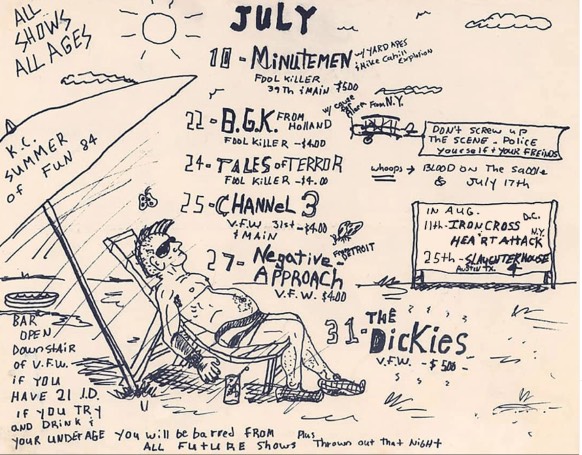 ALL
SHOWS
ALL AGES
JULY
10 - MINUTEMEN w/ YARD APES
& Mike Cahill Explosion
FOOL KILLER
39th & MAIN $500
w/ Cause
Alarm From N.Y.
22 - B.G.K. FROM
HOLLAND
FOOL KILLER - $4.00
24 - TALES OF TERROR
FOOL KILLER - $4.00
25 - CHANNEL 3
V.F.W. 31st - $4.00
& MAIN
27 - Negative -
APPROACH
V.F.W. $4.00
DETROIT
31 - THE
DICKIES
V.F.W. - $500 -
K.C.
SUMMER
OF FUN 84
DON'T SCREW UP
THE SCENE - POLICE
YOURSELF & YOUR FREINDS
whoops → BLOOD ON THE SADDLE
& July 17th
IN AUG.
D.C.
11th - IRON CROSS
N.Y.
HEART ATTACK
25th - SLAUGHTERHOUSE
AUSTIN TX. 4
BAR
OPEN
DOWNSTAIR
OF V.F.W.
IF YOU
HAVE 21 I.D.
IF YOU TRY
AND DRINK &
YOUR UNDERAGE YOU will be barred FROM Plus
ALL FUTURE Shows Thrown out that NIGHT